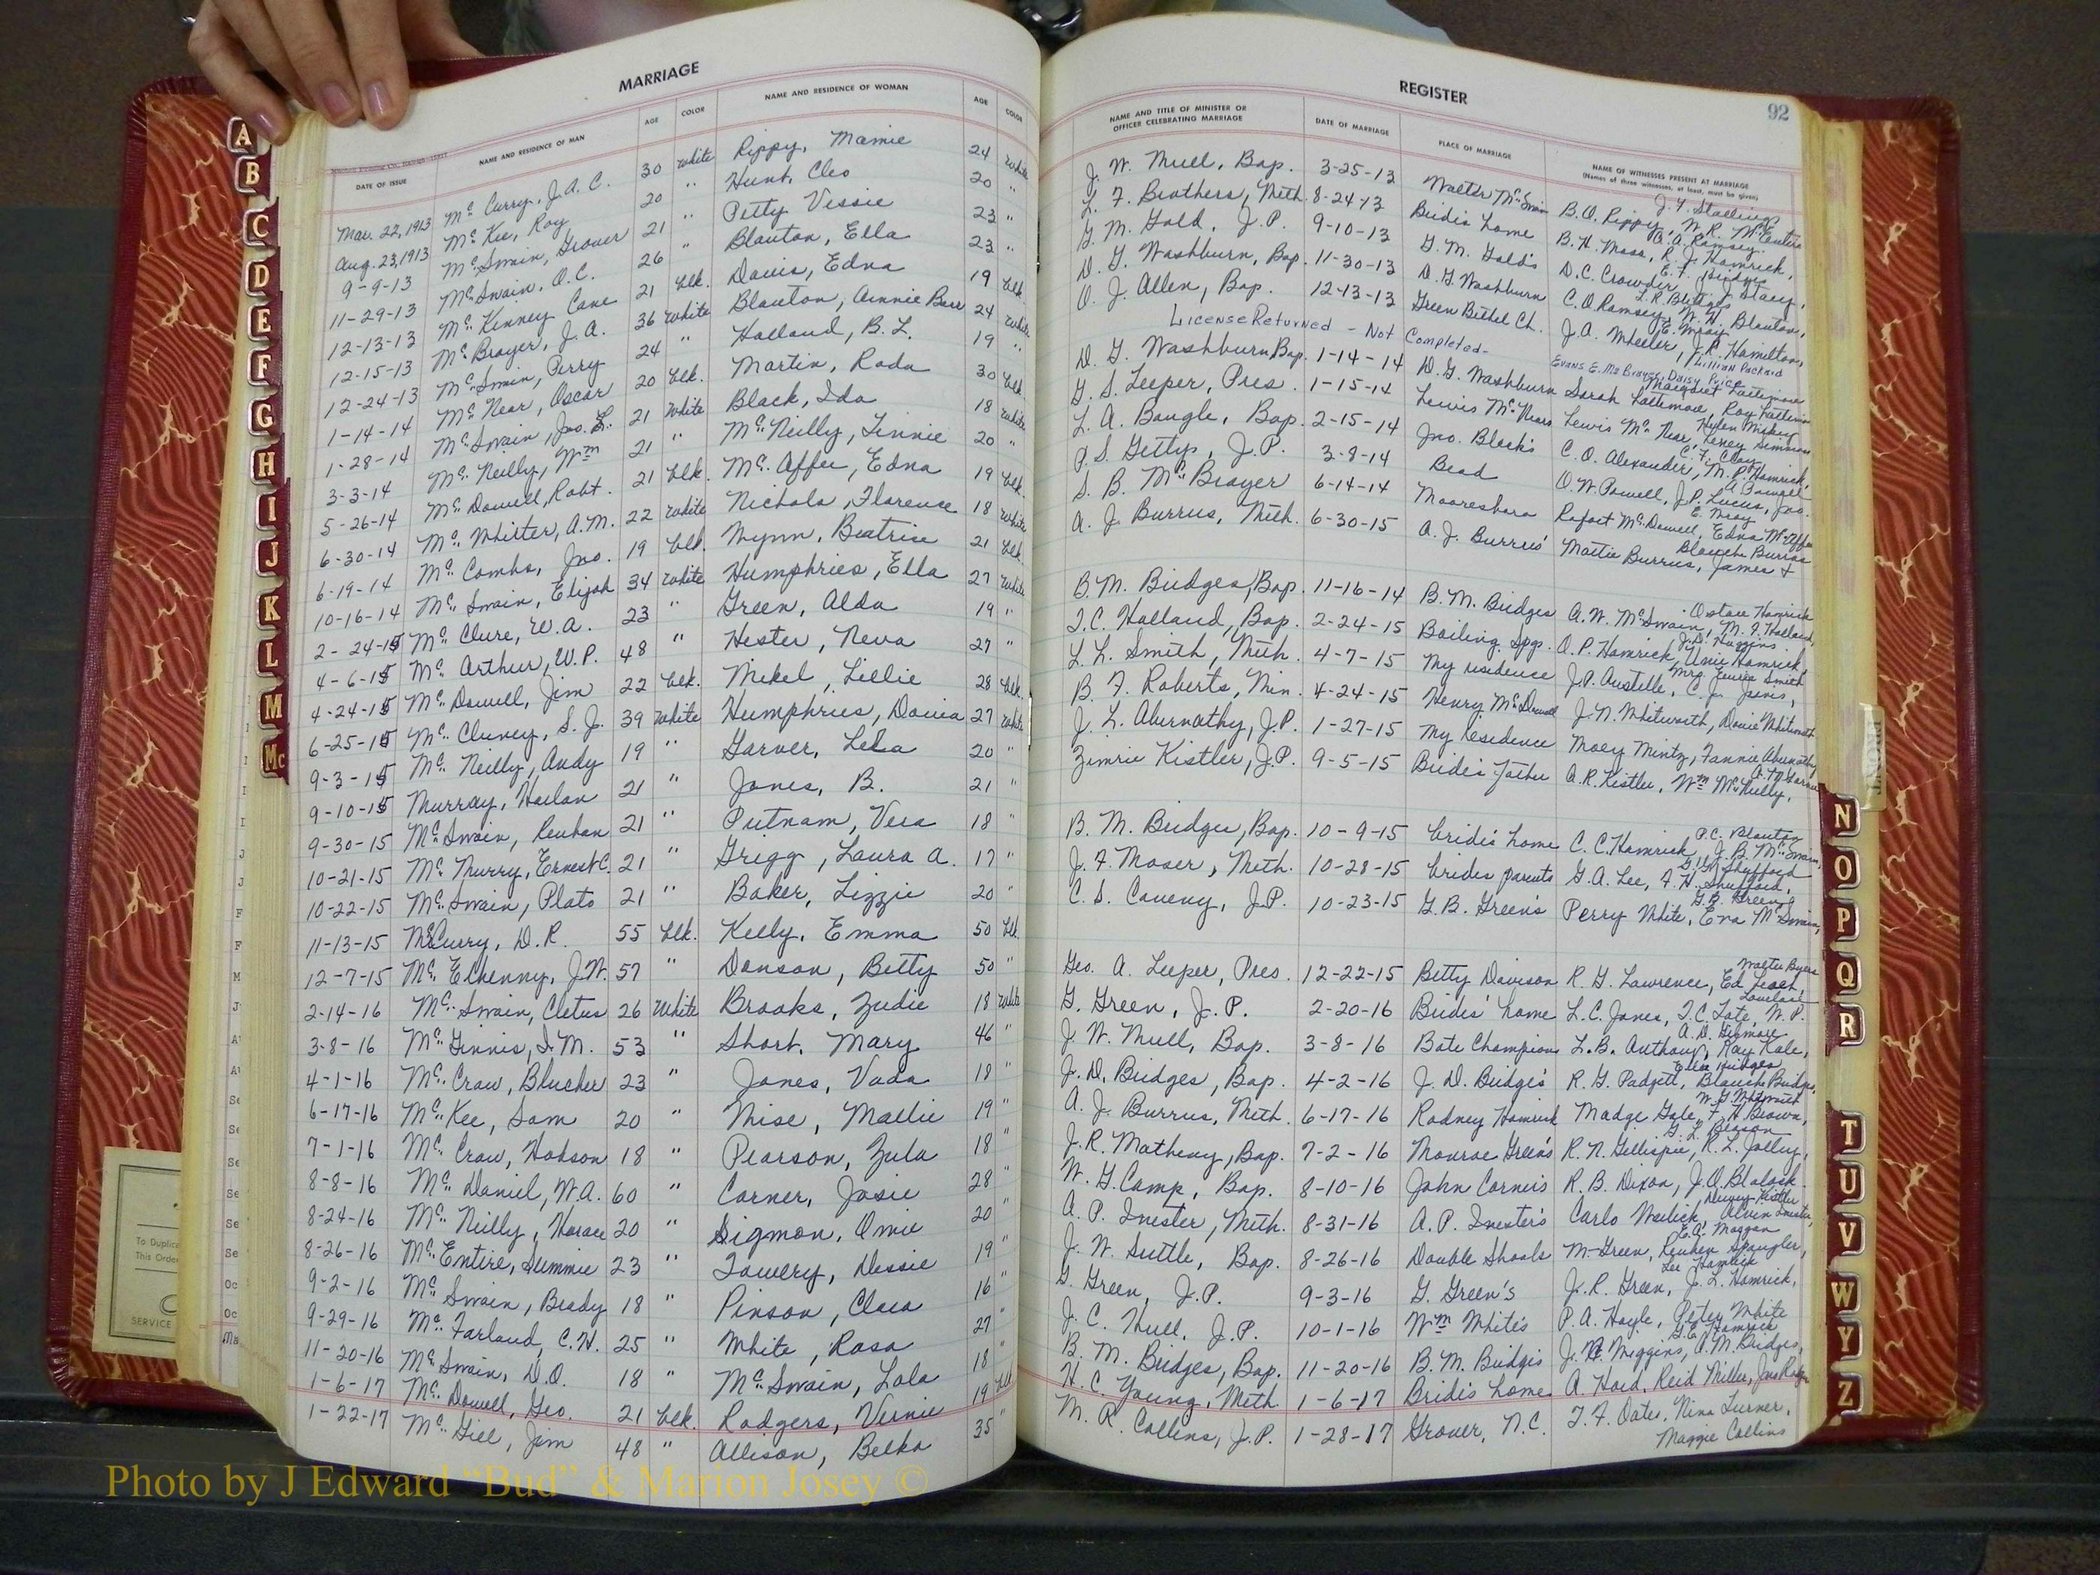 MARRIAGE
DATE OF ISSUE NAME AND RESIDENCE OF MAN AGE COLOR NAME AND RESIDENCE OF WOMAN AGE COLOR
Mar. 22, 1913 Mc Curry, J. A. C. 30 White Rippy, Mamie 24 White
Aug. 23, 1913 Mc Kee, Roy 20 " Hunt, Cleo 20 "
9-9-13 Mc Swain, Grover 21 " Petty Vessie 23 "
11-29-13 Mc Swain, O. C. 26 " Blanton, Ella 23 "
12-13-13 Mc Kenney Cane 21 blk. Davis, Edna 19 blk.
12-15-13 Mc Brayer, J. A. 36 White Blanton, Annie Barr 24 White
12-24-13 Mc Swain, Perry 24 " Holland, B. L. 19 "
1-14-14 Mc Near, Oscar 20 blk. Martin, Rada 30 blk.
1-28-14 Mc Swain, Jno. L. 21 White Black, Ida 18 White
3-3-14 Mc Neilly, Wm 21 " Mc Neilly, Linnie 20 "
5-26-14 Mc Dowell, Robt. 21 blk. Mc Affee, Edna 19 blk.
6-30-14 Mc Whirter, A. M. 22 White Nichols, Florence 18 White
6-19-14 Mc Combs, Jno. 19 blk. Wynn, Beatrice 21 blk.
10-16-14 Mc Swain, Elijah 34 White Humphries, Ella 27 White
2-24-15 Mc Clure, W. A. 23 " Green, Alda 19 "
4-6-15 Mc Arthur, W. P. 48 " Hester, Neva 27 "
4-24-15 Mc Dowell, Jim 22 blk. Mikel, Lillie 28 blk.
6-25-15 Mc Cluney, S. J. 39 White Humphries, Dovia 27 White
9-3-15 Mc Neilly, Andy 19 " Garver, Lela 20 "
9-10-15 Murray, Harlan 21 " Jones, B. 21 "
9-30-15 Mc Swain, Reuhan 21 " Putnam, Vera 18 "
10-21-15 Mc Murry, Ernest C. 21 " Gregg, Laura A. 17 "
10-22-15 Mc Swain, Plato 21 " Baker, Lizzie 20 "
11-13-15 McCurry, D. R. 55 blk. Kelly, Emma 50 blk.
12-7-15 Mc Elhenny, J. W. 57 " Donson, Betty 50 "
2-14-16 Mc Swain, Cletus 26 White Brooks, Zudie 18 White
3-8-16 Mc Ginnis, I. M. 53 " Short, Mary 46 "
4-1-16 Mc Craw, Blucher 23 " Jones, Vada 18 "
6-17-16 Mc Kee, Sam 20 " Wise, Mallie 19 "
7-1-16 Mc Craw, Hobson 18 " Pearson, Zula 18 "
8-8-16 Mc Daniel, W. A. 60 " Corner, Josie 28 "
8-24-16 Mc Neilly, Horace 20 " Sigmon, Omie 20 "
8-26-16 Mc Entire, Summie 23 " Towery, Dessie 19 "
9-2-16 Mc Swain, Brady 18 " Pinson, Clara 16 "
9-29-16 Mc Farland, C. H. 25 " White, Rosa 27 "
11-20-16 Mc Swain, D. O. 18 " Mc Swain, Lola 18 "
1-6-17 Mc Dowell, Geo. 21 blk. Rodgers, Vernie 19 blk
1-22-17 Mc Gill, Jim 48 " Allison, Belka 35 "
REGISTER
92
NAME AND TITLE OF MINISTER OR OFFICER CELEBRATING MARRIAGE DATE OF MARRIAGE PLACE OF MARRIAGE NAME OF WITNESSES PRESENT AT MARRIAGE
(Names of three witnesses, at least, must be given)
J. W. Mull, Bap. 3-25-13 Walter McSwain B. O. Rippy, W. R. McEntire J. Y. Stallings
L. F. Brothers, Meth. 8-24-13 Bride's home B. H. Moss, R. J. Hamrick, A. A. Ramsey
G. M. Gold, J. P. 9-10-13 G. M. Gold's D. C. Crowder
D. G. Washburn, Bap. 11-30-13 D. G. Washburn C. O. Ramsey, W. H. Blanton,
O. J. Allen, Bap. 12-13-13 Green Bethel Ch. J. A. Wheeler, J. R. Hamilton,
License Returned - Not Completed - Evans E. McBrayer, Daisy Price, Lillian Packard
D. G. Washburn Bap. 1-14-14 D. G. Washburn Sarah Lattimore, Roy Lattimore Margaret Lattimore
G. S. Leeper, Pres. 1-15-14 Lewis McNears Lewis McNear, Lenny Simmons
L. A. Bangle, Bap. 2-15-14 Jno. Black's C. O. Alexander, M. P. Hamrick, C. F. Clay
P. S. Gettys, J. P. 3-8-14 Bead O. W. Powell, J. P. Lucus, Jno.
S. B. McBrayer 6-14-14 Mooresboro Rofort McDowell, Edna McAffee
A. J. Burrus, Meth. 6-30-15 A. J. Burrus' Mattie Burrus, James & Blanch Burrus
B. M. Bridges, Bap. 11-16-14 B. M. Bridges A. W. McSwain, M. F. Holland, Octave Hamrick
T. C. Holland, Bap. 2-24-15 Boiling Spgs. O. P. Hamrick, Unie Hamrick, J. D. Huggins
L. L. Smith, Meth. 4-7-15 My residence J. P. Austelle, C. J. Jarvis,
B. F. Roberts, Min. 4-24-15 Henry McDowell J. N. Whitworth, Dovie Whitworth
J. L. Abernathy, J. P. 1-27-15 My residence Moey Mintz, Fannie Abernathy
Zimrie Kistler, J. P. 9-5-15 Bride's Father A. R. Kistler, Wm McNeilly,
B. M. Bridges, Bap. 10-9-15 bride's home C. C. Hamrick, J. B. McSwain, P. C. Blanton
J. F. Moser, Meth. 10-28-15 brides parents G. A. Lee, A. H. Shufford,
C. S. Caveny, J. P. 10-23-15 G. B. Green's Perry White, Eva McSwain, G. B. Green
Geo. A. Leeper, Pres. 12-22-15 Betty Davison R. G. Lawrence, Ed Leach, Walter Byers
G. Green, J. P. 2-20-16 Brides' home L. C. Jones, T. C. Tate, W. P. Lovelace
J. W. Mull, Bap. 3-8-16 Bate Champions L. B. Anthony, Ray Kale, A. D. Gilmore
J. D. Bridges, Bap. 4-2-16 J. D. Bridge's R. G. Padgett, Blanche Bridges, Ella Bridges
A. J. Burrus, Meth. 6-17-16 Rodney Hamrick Madge Gale, F. H. Brown, W. G. Whitworth
J. R. Matheny, Bap. 7-2-16 Monroe Green's R. N. Gillispie, R. L. Jolley,
W. G. Camp, Bap. 8-10-16 John Corner's R. B. Dixon, J. O. Blalock.
A. P. Inester, Meth. 8-31-16 A. P. Inester's Carlo Weilick, Alvin Inester,
J. W. Suttle, Bap. 8-26-16 Double Shoals M- Green, Reuhen Spangler,
G. Green, J. P. 9-3-16 G. Green's J. R. Green, J. L. Hamrick,
J. C. Hull, J. P. 10-1-16 Wm White's P. A. Hoyle, Lester White
B. M. Bridges, Bap. 11-20-16 B. M. Bridges J. N. Wiggins, A. M. Bridges,
H. C. Young, Meth 1-6-17 Bride's home A. Hord, Reid Miller,
M. R. Collins, J. P. 1-28-17 Grover, N. C. T. F. Oates, Nina Turner,
Maggie Collins
A
B
C
D
E
F
G
H
I
J
K
L
M
Mc
N
O
P
Q
R
T
U
V
W
Y
Z
To Duplic
This Order
SERVICE
Photo by J Edward “Bud” & Marion Josey ©